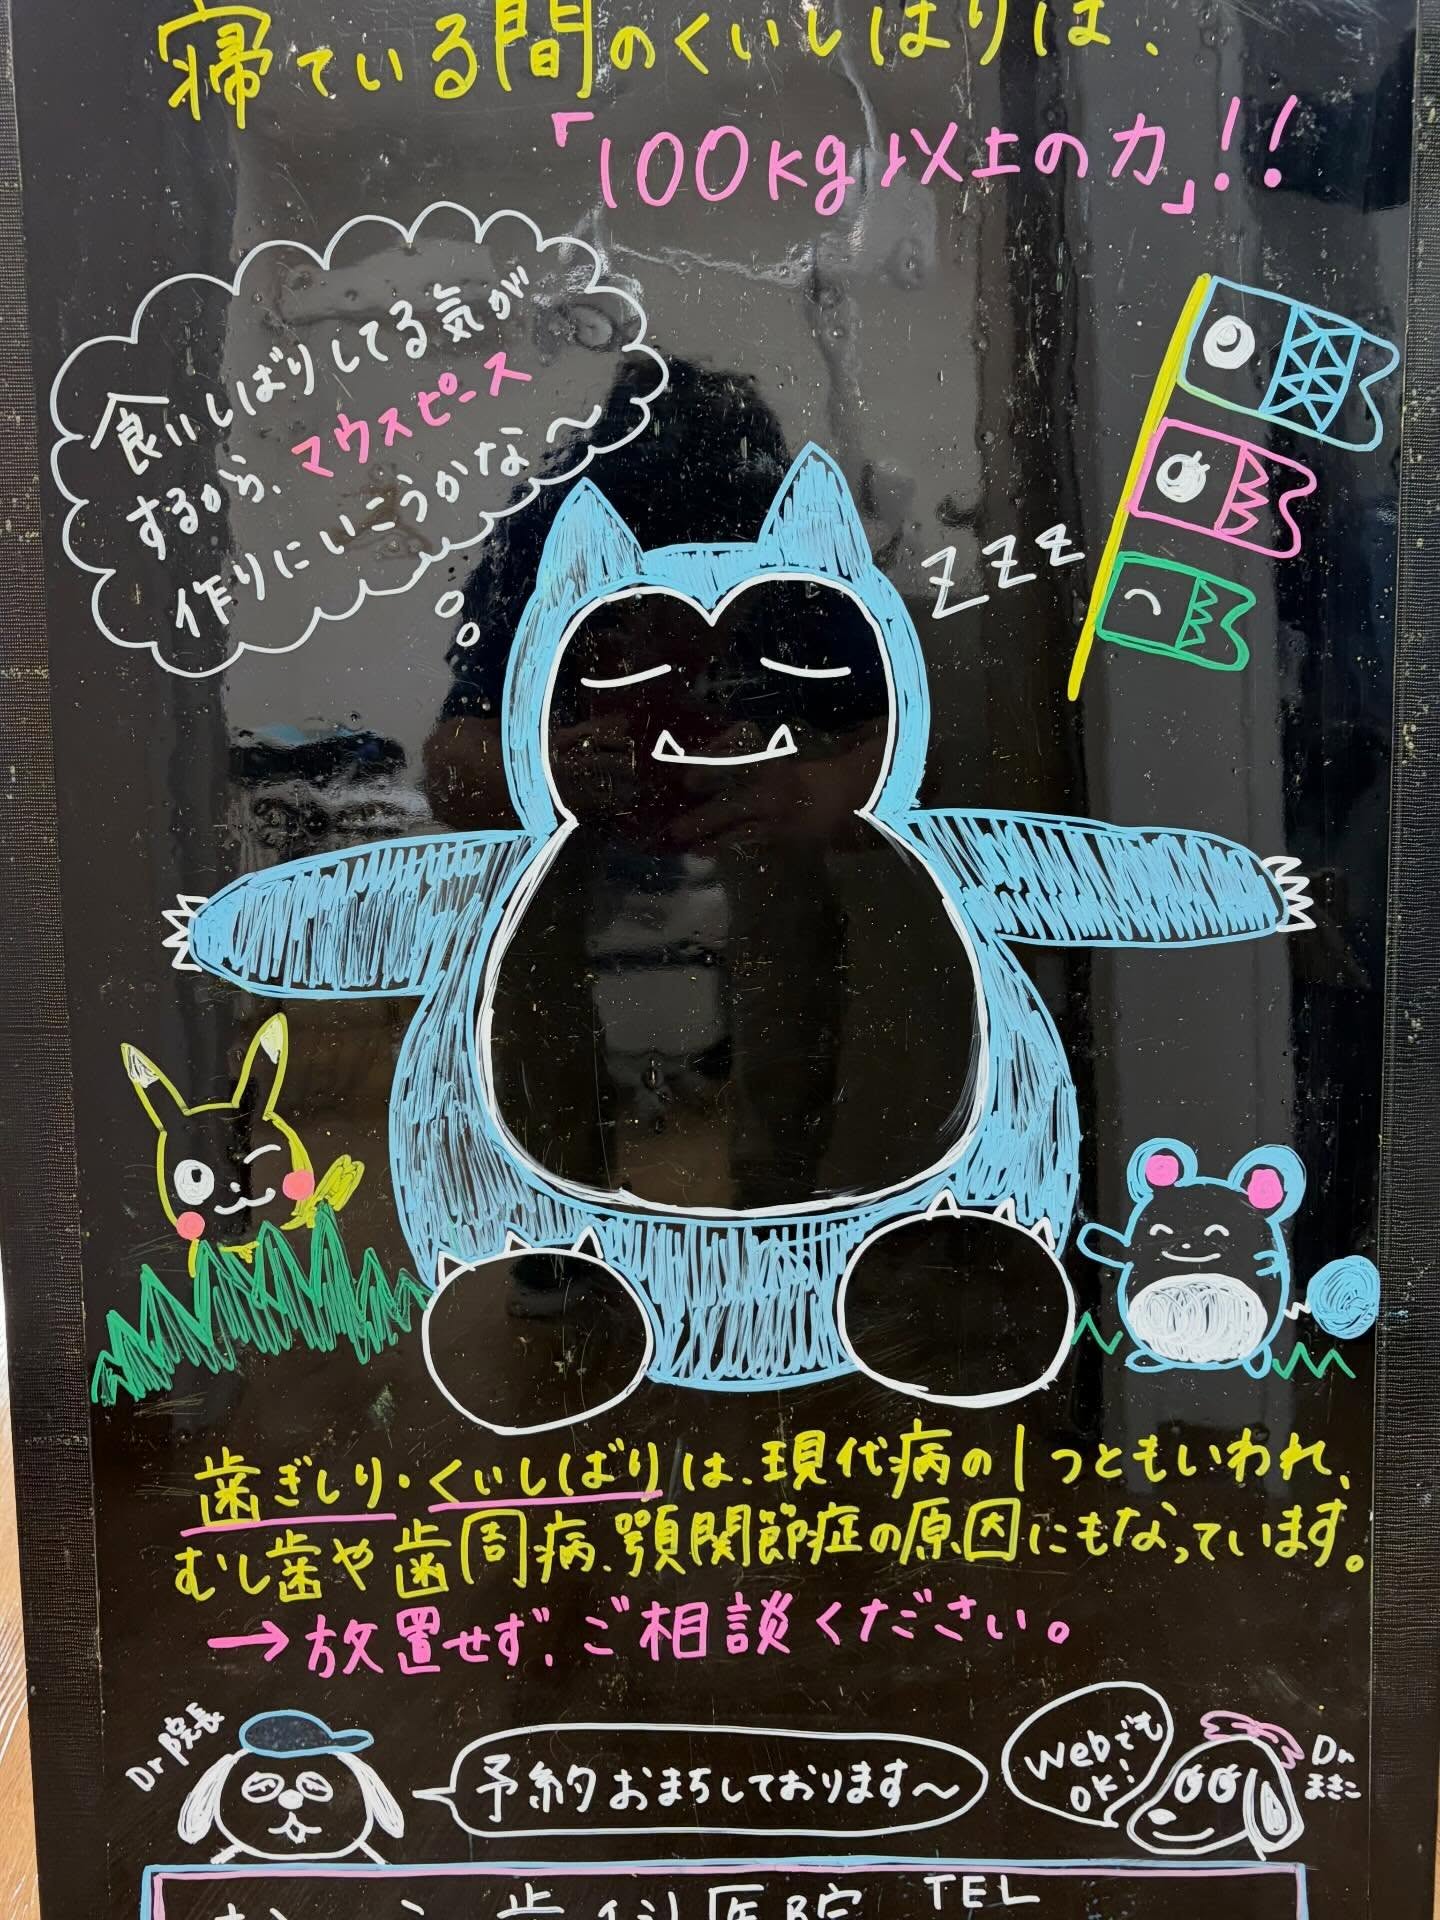 寝ている間のくいしばりは、
「100kg以上の力」!!
食いしばりしてる気が
するから、マウスピース
作りにいこうかな〜
zzz
歯ぎしり・くいしばりは、現代病の1つともいわれ、
むし歯や歯周病、顎関節症の原因にもなっています。
→放置せず、ご相談ください。
Dr院長
予約おまちしております〜
Webでも
OK!
Dr
まさこ
歯科医院 TEL